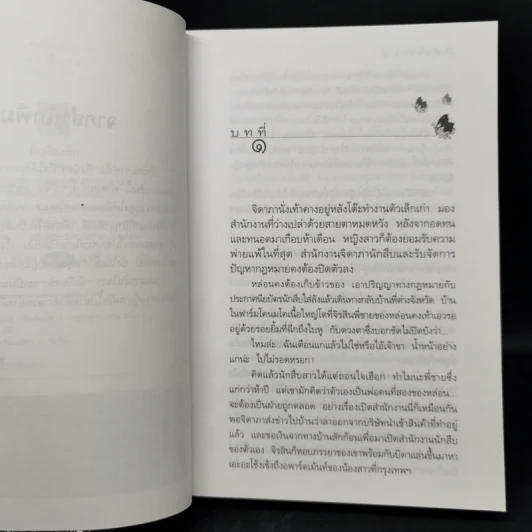 จากสำนักพิม
บทที่
๑
จิดาภานั่งเท้าคางอยู่หลังโต๊ะทำงานตัวเล็กเก่า มอง
สำนักงานที่ว่างเปล่าด้วยสายตาหมดหวัง หลังจากอดทน
และทนอดมาเกือบห้าเดือน หญิงสาวก็ต้องยอมรับความ
พ่ายแพ้ในที่สุด สำนักงานจิดาภานักสืบและรับจัดการ
ปัญหากฎหมายคงต้องปิดตัวลง
หล่อนคงต้องเก็บข้าวของ เอาปริญญาทางกฎหมายกับ
ประกาศนียบัตรนักสืบใส่ลังแล้วเดินทางกลับบ้านที่ต่างจังหวัด บ้าน
ในฟาร์มโคนมโคเนื้อใหญ่โตที่จิรสินพี่ชายของหล่อนคงเท้าเอวรอ
อยู่ด้วยรอยยิ้มที่ฉีกถึงใบหู กับดวงตาซึ่งบอกชัดไม่ปิดบังว่า...
ไหมล่ะ ฉันเตือนแกแล้วไม่ใช่หรือไอ้เจ้าขา น้ำหน้าอย่าง
แกน่ะ ไปไม่รอดหรอก!
คิดแล้วนักสืบสาวได้แต่ถอนใจเฮือก ทำไมนะพี่ชายซึ่ง
แก่กว่าห้าปี แต่เขามักคิดว่าตัวเองเป็นพ่อคนที่สองของหล่อน...
จะต้องเป็นฝ่ายถูกตลอด อย่างเรื่องเปิดสำนักงานนี่ก็เหมือนกัน
พอจิดาภาส่งข่าวไปบ้านว่าลาออกจากบริษัทนำเข้าสินค้าที่ทำอยู่
แล้ว และขอเงินจากทางบ้านสักก้อนเพื่อมาเปิดสำนักงานนักสืบ
ของตัวเอง จิรสินก็หอบภรรยาของเขาพร้อมกับบิดาแล่นขึ้นมาหา
เอะอะโช้งเช้งถึงอพาร์ตเม้นท์ของน้องสาวที่กรุงเทพฯ